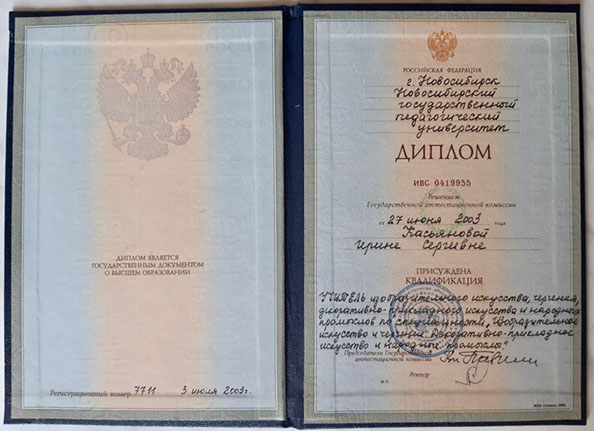 ДИПЛОМ ЯВЛЯЕТСЯ
ГОСУДАРСТВЕННЫМ ДОКУМЕНТОМ
О ВЫСШЕМ ОБРАЗОВАНИИ
Регистрационный номер 7711 3 июля 2003г.
РОССИЙСКАЯ ФЕДЕРАЦИЯ
г. Новосибирск
Новосибирский
государственный
педагогический
университет
ДИПЛОМ
ИВС 0419955
Решением
Государственной аттестационной комиссии
от 27 июня 2003 года
Касьяновой
Ирине Сергеевне
ПРИСУЖДЕНА
КВАЛИФИКАЦИЯ
УЧИТЕЛЬ изобразительного искусства, черчения,
декоративно-прикладного искусства и народных
промыслов по специальности „Изобразительное
искусство и черчение. Декоративно-прикладное
искусство и народные промыслы"
Председатель Государственной
аттестационной комиссии
Ректор
М.П.